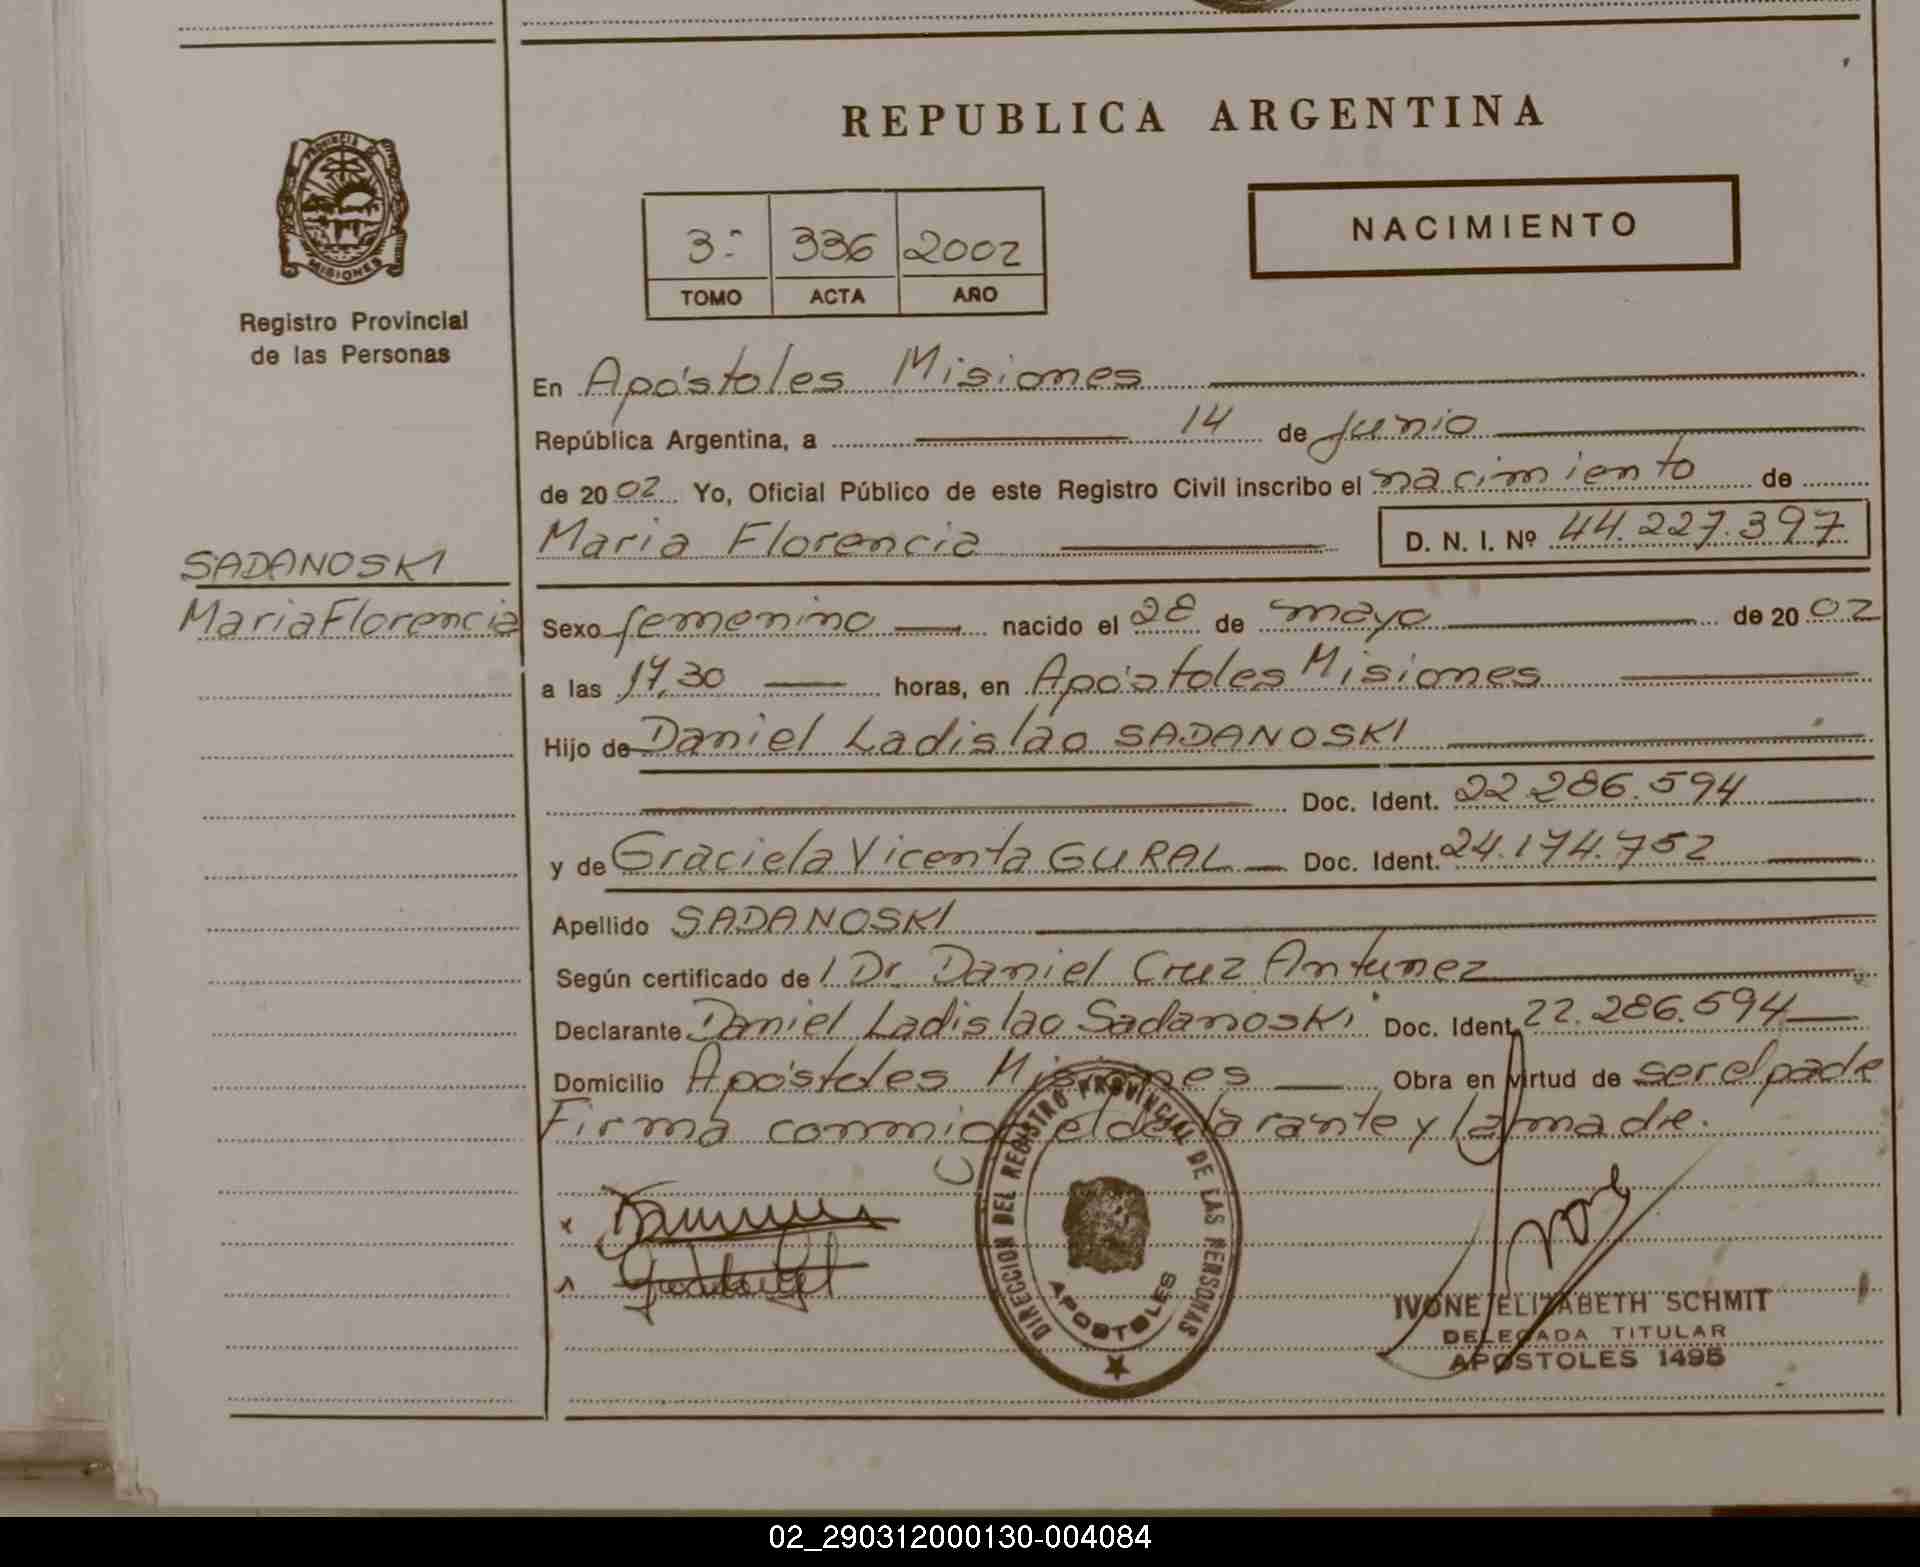 PROVINCIA DE
MISIONES
Registro Provincial
de las Personas
SADANOSKI
Maria Florencia
REPUBLICA ARGENTINA
3º 336 2002
TOMO ACTA AÑO
NACIMIENTO
En Apóstoles Misiones
República Argentina, a 14 de Junio
de 2002 Yo, Oficial Público de este Registro Civil inscribo el nacimiento de
Maria Florencia D. N. I. Nº 44.227.397
Sexo femenino nacido el 28 de mayo de 2002
a las 17,30 horas, en Apóstoles Misiones
Hijo de Daniel Ladislao SADANOSKI
Doc. Ident. 22.286.594
y de Graciela Vicenta GURAL Doc. Ident. 24.174.752
Apellido SADANOSKI
Según certificado de l Dr. Daniel Cruz Antunez
Declarante Daniel Ladislao Sadanoski Doc. Ident. 22.286.594
Domicilio Apóstoles Misiones Obra en virtud de ser el padre
Firma conmigo el declarante y la madre.
DIRECCION DEL REGISTRO PROVINCIAL DE LAS PERSONAS
APOSTOLES
IVONE ELIZABETH SCHMIT
DELEGADA TITULAR
APOSTOLES 1495
02_290312000130-004084